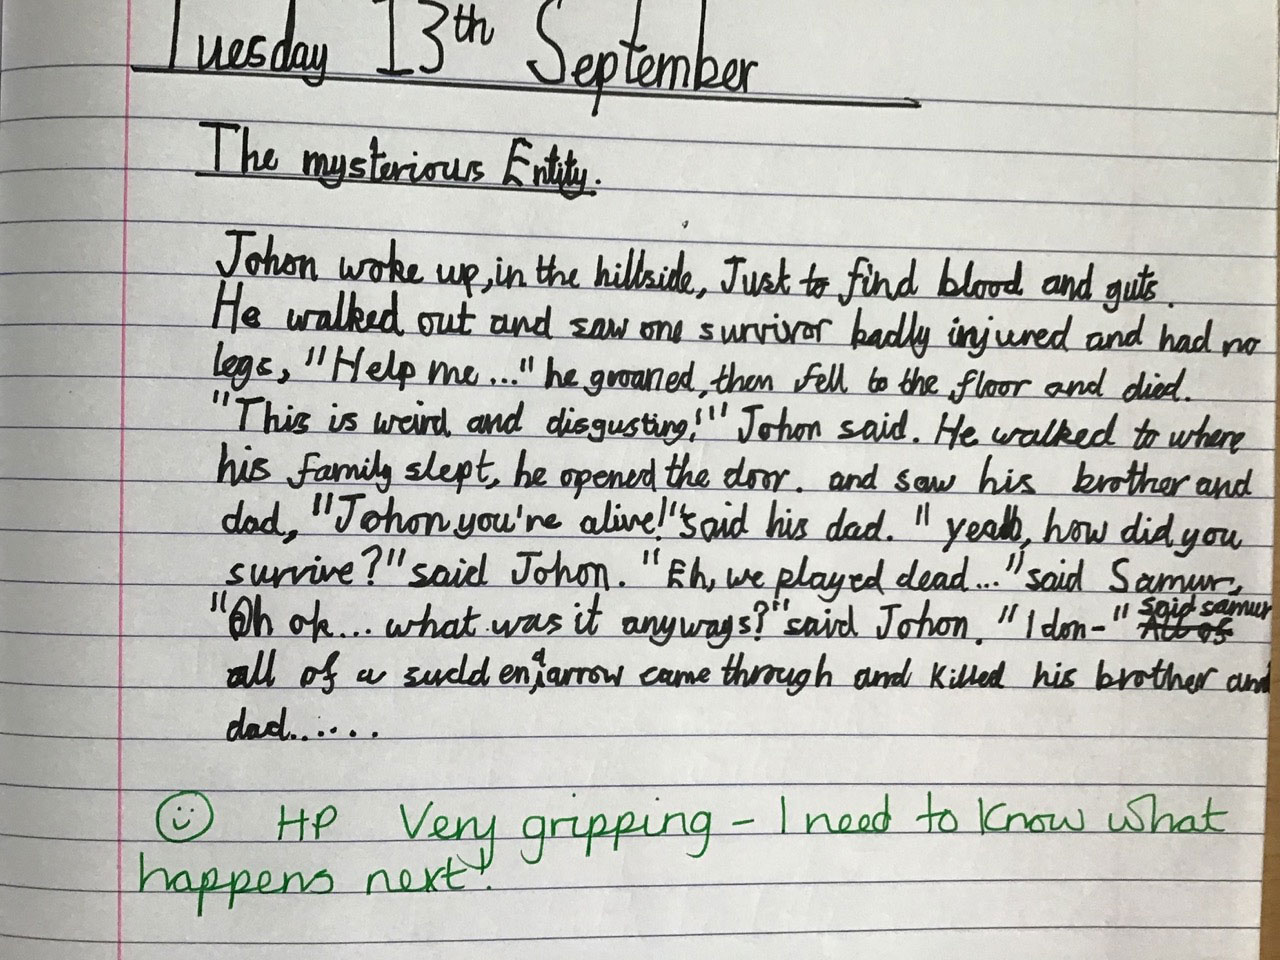 Tuesday 13th September
The mysterious Entity.
Johon woke up, in the hillside, Just to find blood and guts.
He walked out and saw one survivor badly injured and had no
legs, "Help me..." he groaned, then fell to the floor and died.
"This is weird and disgusting!'" Johon said. He walked to where
his family slept, he opened the door. and saw his brother and
dad, "Johon you're alive!" said his dad. "yeah, how did you
survive?" said Johon. "Eh, we played dead..." said Samur,
"Oh ok... what was it anyways?" said Johon. "I don-" said samur
all of a sudden, a arrow came through and killed his brother and
dad......
HP Very gripping - I need to know what
happens next!